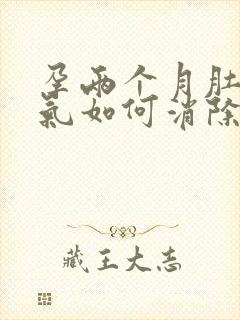 孕两个月肚
氣如何消除
藏王大志